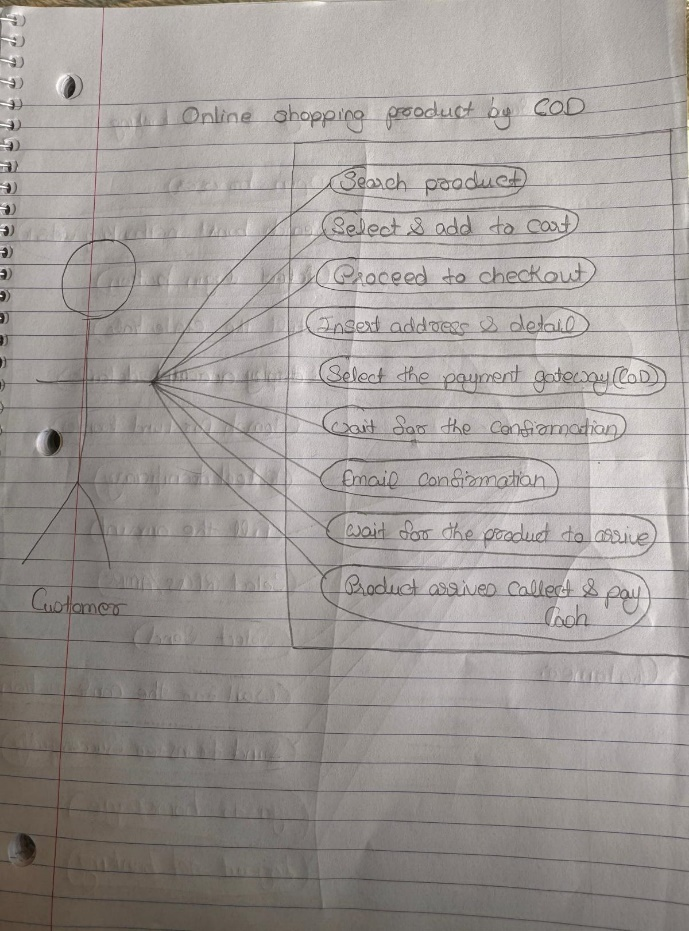 Online shopping product by COD
Search product
Select & add to cart
Proceed to checkout
Insert address & detail
Select the payment gateway (COD)
wait for the confirmation
Email confirmation
wait for the product to arrive
Product arrives collect & pay
Cash
Customer